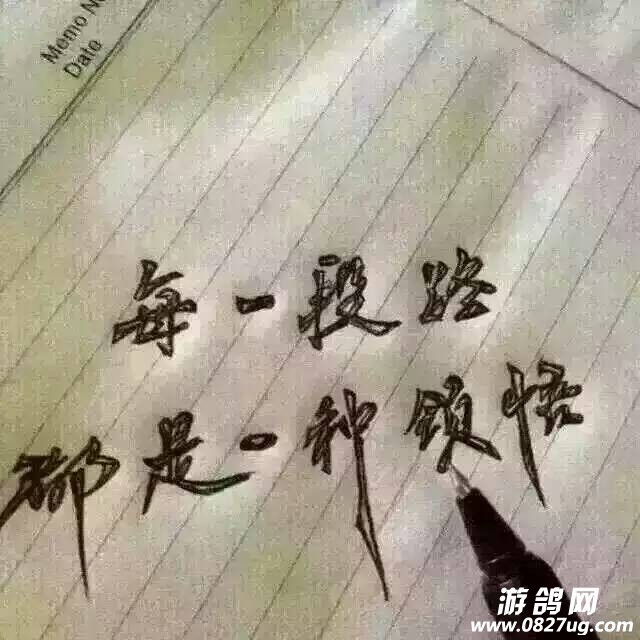 Memo No
Date
每一段路
都是一种领悟
游鸽网
www.0827ug.com